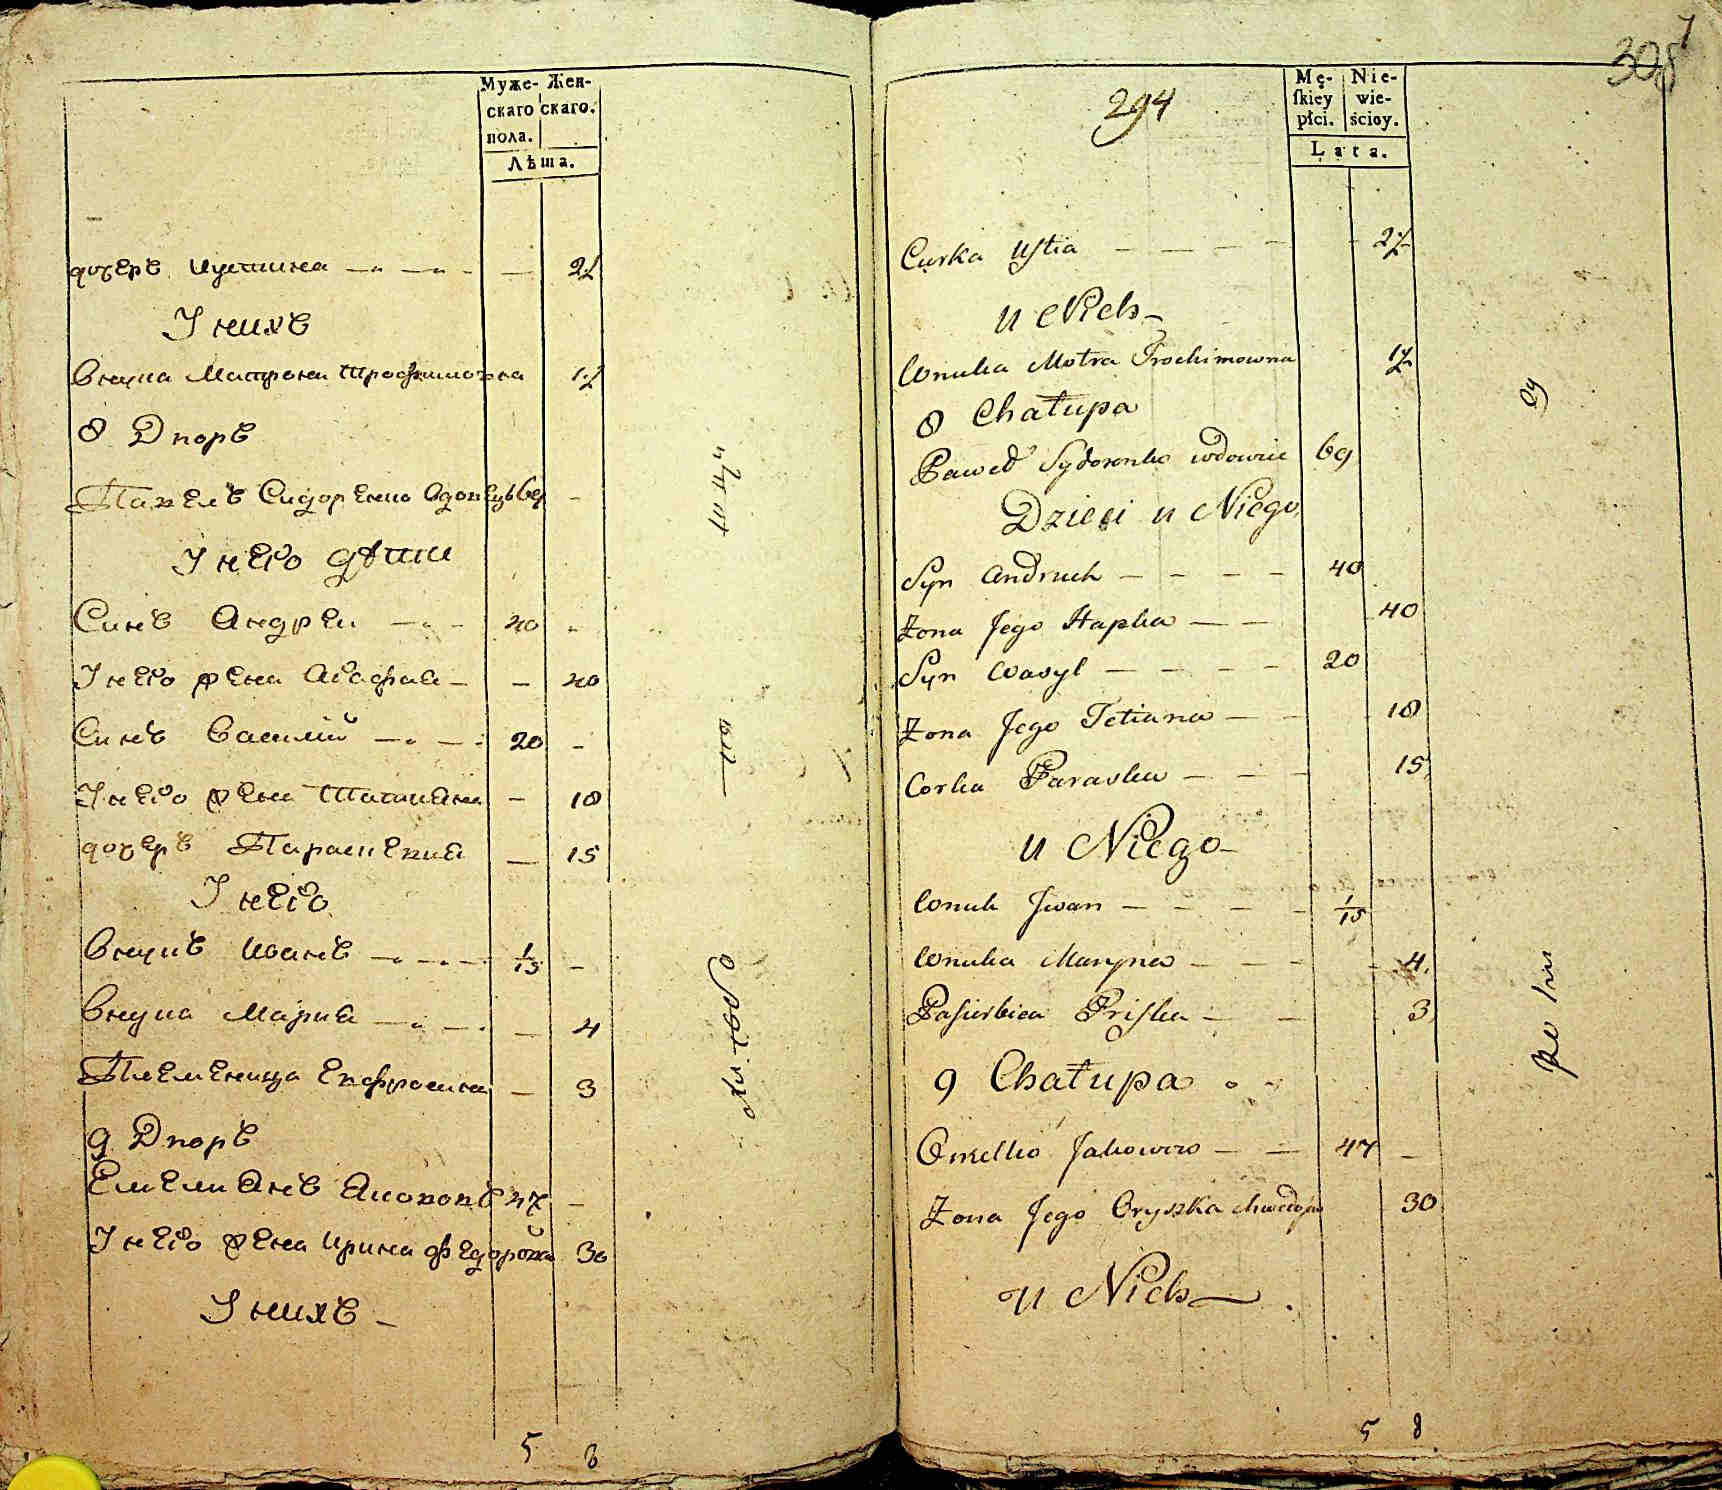 Муже- Жен-
скаго скаго.
пола.
Лѣта.
дочерь Иустина 27
У нихъ
Внука Матрона Трофимовна 17
8 Дворъ
Павелъ Сидоренко вдовецъ 69
У него дѣти
Синъ Андрей 40
У него жена Агафия 40
Синъ Василий 20
У него жена Татияна 18
дочерь Параскевия 15
У него
Внукъ Иванъ 1/15
Внука Мария 4
Племеница Евфросина 3
9 Дворъ
Емелиянъ Якововъ 47
У него жена Ирина Федорова 30
У нихъ
5 8
308
294
Mę- Nie-
skiey wie-
płci. ściey.
Lata.
Curka Ustia 27
u Nich
Wnuka Motra Trochimowna 17
8 Chałupa
Paweł Sydorenko wdowiec 69
Dzieci u Niego
Syn Andruch 40
Żona Jego Hapka 40
Syn Wasyl 20
Żona Jego Tetiana 18
Corka Paraska 15
u Niego
Wnuk Jwan 1/15
Wnuka Maryna 4
Pasierbica Priska 3
9 Chałupa
Omelko Jakowow 47
Żona Jego Oryszka 30
u Nich
5 8